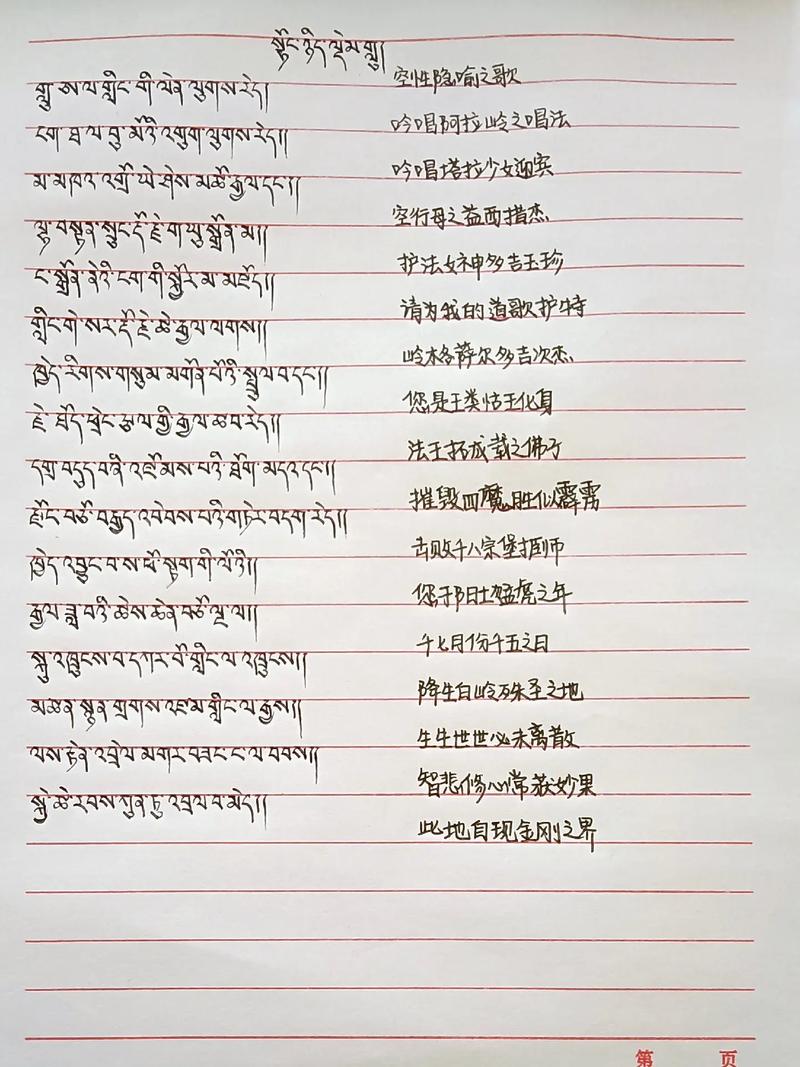 སྟོང་ཉིད་ལྡེམ་གླུ།
空性隐喻之歌
གླུ་ཨ་ལ་གླིང་གི་ལེན་ལུགས་རེད།
吟唱阿拉岭之唱法
ངག་ཐ་ལ་བུ་མོའི་འགུག་ལུགས་རེད།།
吟唱塔拉少女迎宾
མ་མཁའ་འགྲོ་ཡེ་ཤེས་མཚོ་རྒྱལ་དང་།།
空行母之益西措杰
ལྷ་བསྟན་སྲུང་རྡོ་རྗེ་གཡུ་སྒྲོན་མ།།
护法女神多吉玉珍
ང་སྒྲོན་ནེའི་ངག་གི་སྐྱོར་མ་མཛོད།
请为我的道歌护持
གླིང་གེ་སར་རྡོ་རྗེ་ཚེ་རྒྱལ་ལགས།།
岭格萨尔多吉次杰
ཁྱེད་རིགས་གསུམ་མགོན་པོའི་སྤྲུལ་བ་དང་།།
您是三类怙主化身
རྗེ་ཐོད་ཕྲེང་རྩལ་གྱི་རྒྱལ་ཚབ་རེད།།
法王拓成载之佛子
དགྲ་བདུད་བཞི་འཇོམས་པའི་ཐོག་མདའ་དང་།།
摧毁四魔胜似霹雳
རྫོང་བཅོ་བརྒྱད་འབེབས་པའི་གཏེར་བདག་རེད།།
击败十八宗堡掘师
ཁྱེད་འབྱུང་བ་ས་ཕོ་སྟག་གི་ལོའི།།
您于阳土猛虎之年
རྒྱལ་ཟླ་བའི་ཚེས་ཆེན་བཅོ་ལྔ་ལ།།
十七月份十五之日
སྐུ་འཁྲུངས་བ་དཀར་པོ་གླིང་ལ་འཁྲུངས།།
降生白岭殊圣之地
མཚན་སྙན་གྲགས་འཛམ་གླིང་ལ་རྒྱས།།
生生世世必未离散
ལས་རྟེན་འབྲེལ་མགར་བཟང་ང་ལ་བབས།།
智悲修心常获妙果
སྐྱེ་ཚེ་རབས་ཀུན་ཏུ་འབྲལ་བ་མེད།།
此地自现金刚之界
第 页